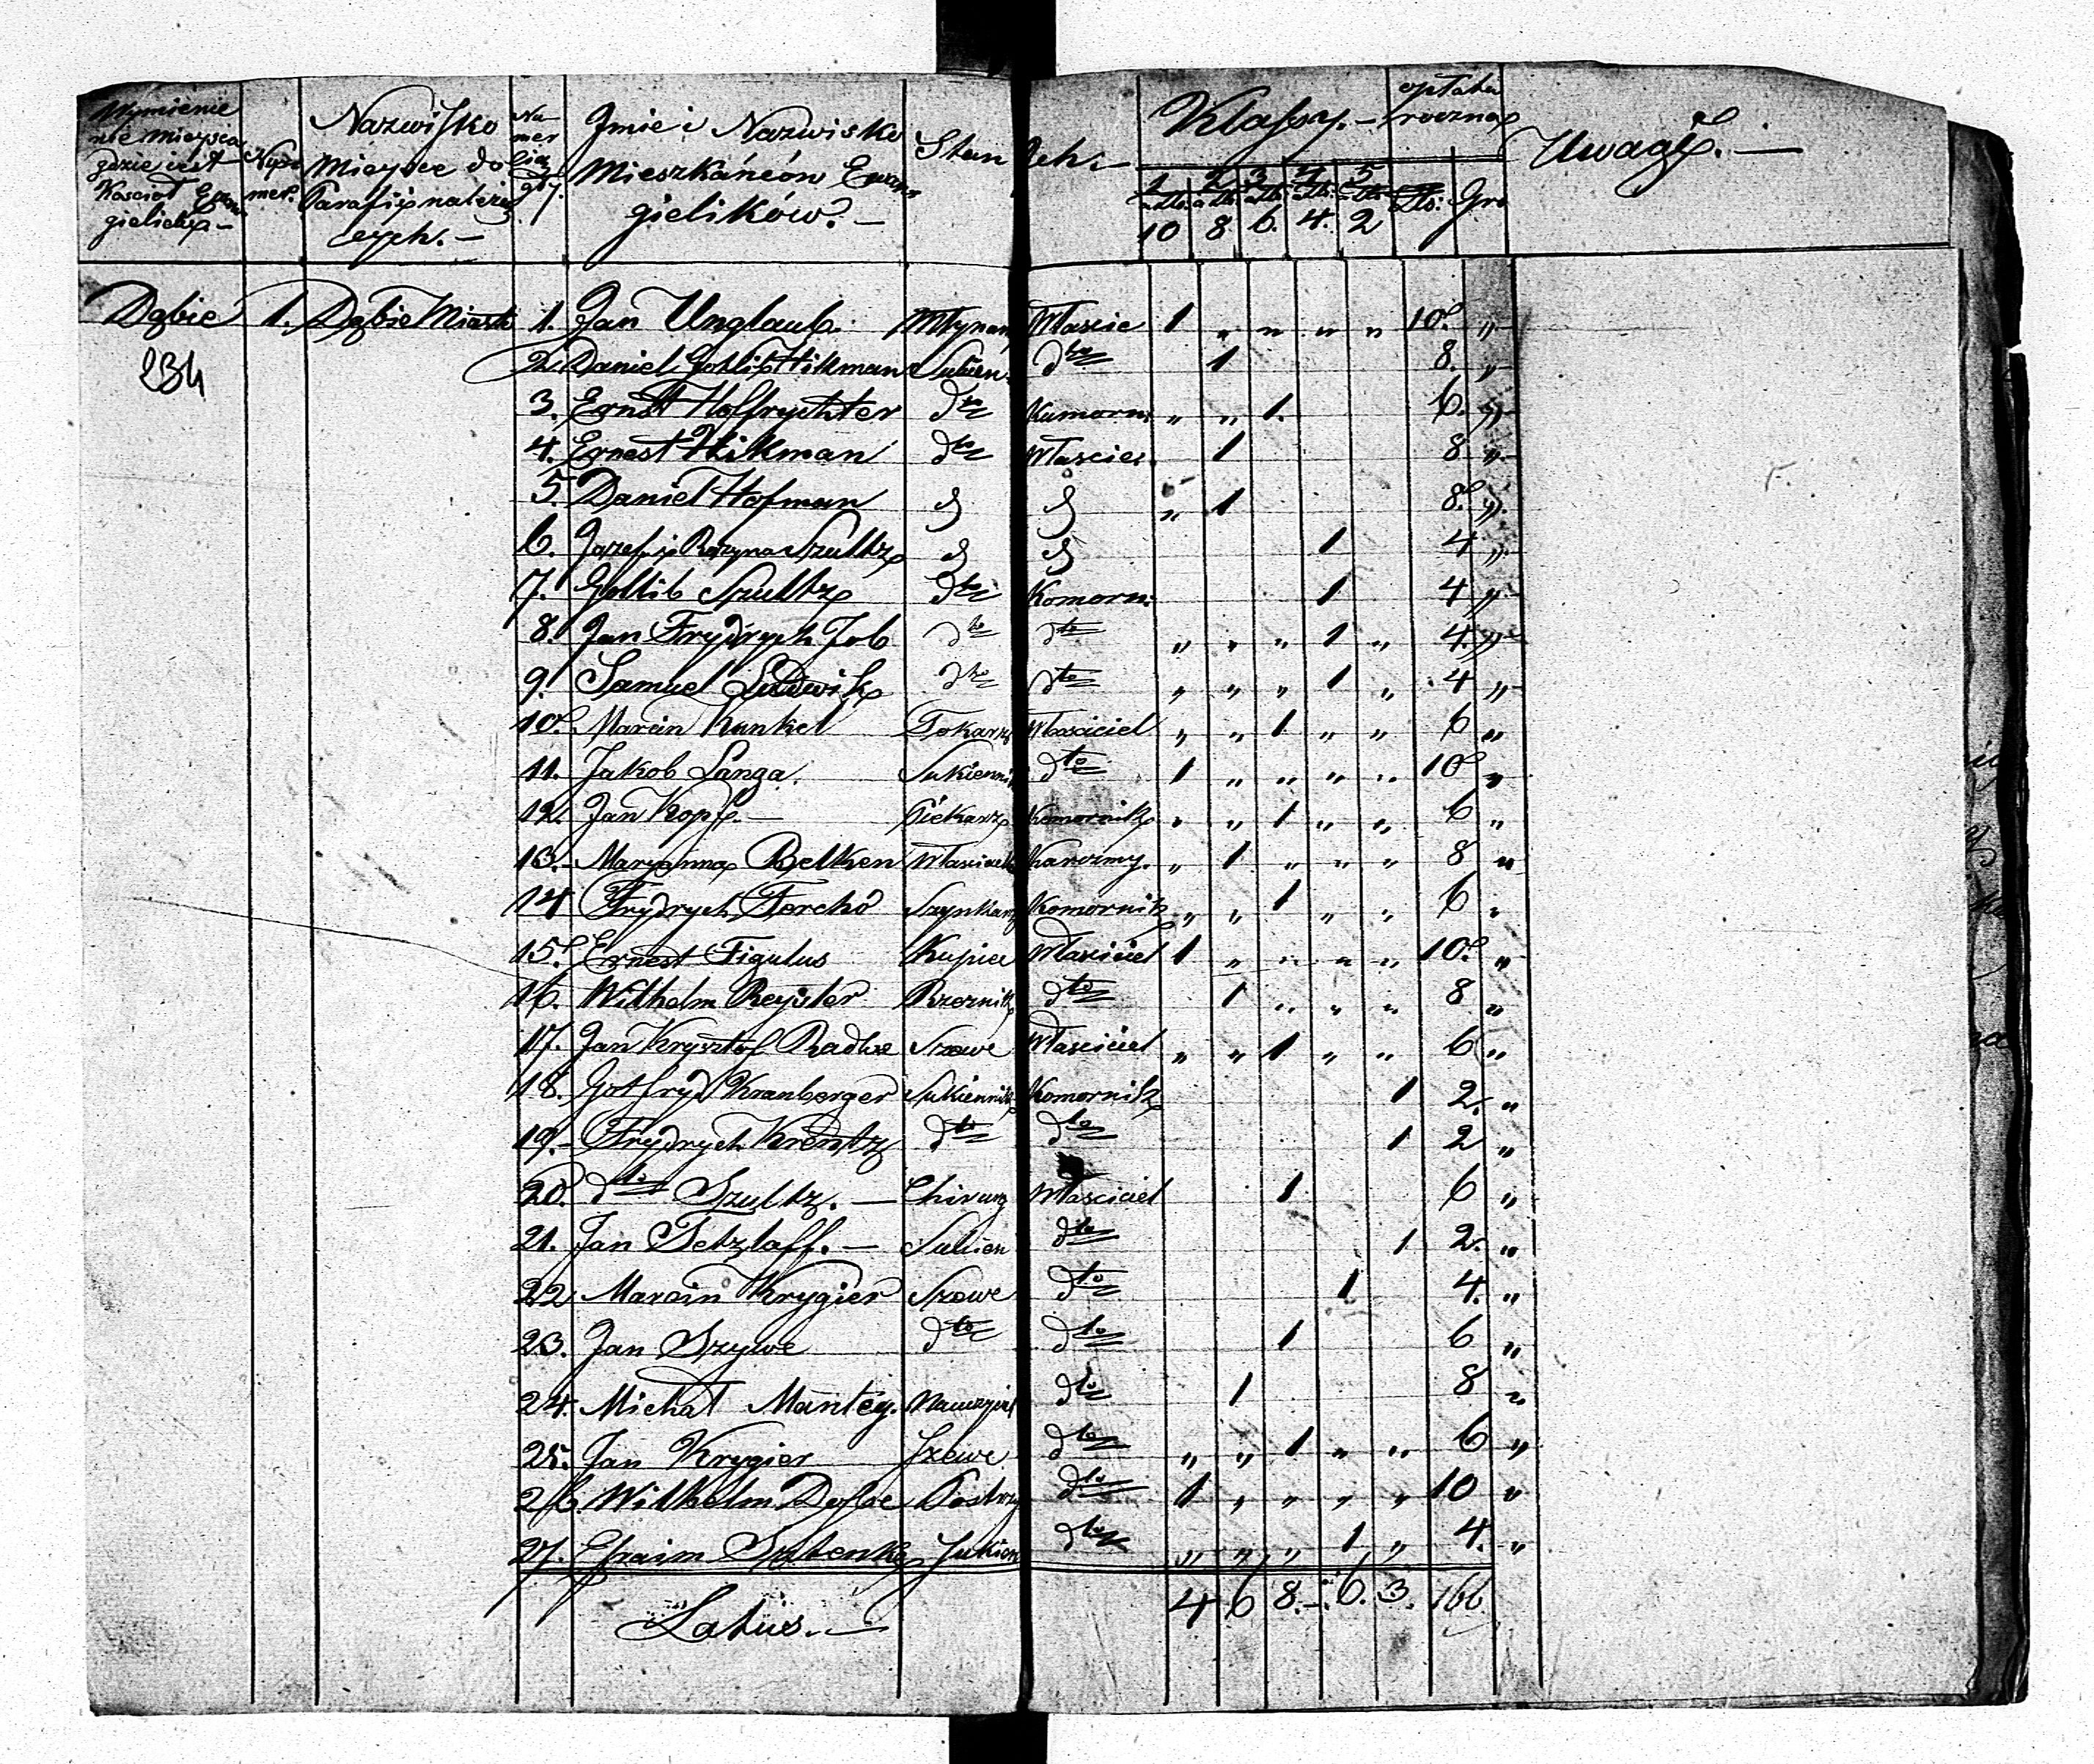 Wymienie
nie mieysca
gdzie iest
Kosciół Ewan
gielicky
Nu
mer.
Nazwisko
Mieysc do
Parafii należą
cych.
Nu-
mer
Imie i Nazwisko
Mieszkańców Ewan
gielików.
Stan Ich.
Klassy. opłata
roczna
Uwagi.
1 2 3 4 5
a Zło. a Zło. a Zło. a Zło. a Zło. Zło: Gro
10 8 6. 4. 2
Dąbie 1. Dąbie Miasto 1. Jan Unglaub. Młynarz Właście 1 „ „ „ „ 10. „
234
2. Daniel Gotlib Hikman Sukien. dto 1 8. „
3. Ernst Hoffrychter dto Komorn. „ „ 1. 6. „
4. Ernest Hikman dto Właściei. 1 8 „
5. Daniel Hofman d d „ 1 8. „
6. Rozyna Szultz d d 1 4 „
7. Gottlib Szultz dto Komorn. 1 4 „
8. Jan Frydrych Job dto dto „ „ „ 1 „ 4. „
9. Samuel Ludwik dto dto „ „ „ 1 „ 4 „
10. Marcin Kunkel Tokarz Właściciel „ „ 1 „ „ 6 „
11. Jakob Langa. Sukienni dto 1 „ „ „ „ 10 „
12. Jan Kopf. Piekarz Komornik „ „ 1 „ „ 6 „
13. Maryanna Belken Właściciel Karczmy. „ 1 „ „ „ 8 „
14 Frydrych Fercho Szynkarz Komornik „ „ 1 „ „ 6 „
15. Ernest Figulus Kupiec Właściciel 1 „ „ „ „ 10. „
16. Wilhelm Reyster Rzeznik dto 1 „ „ „ 8 „
17. Jan Krysztof Radke Szewc Właściciel „ „ 1 „ „ 6 „
18. Gotfryd Kranberger Sukiennik Komornik 1 2. „
19. Frydrych Krentz dto dto 1 2 „
20. dto Szultz. Chirurg Właściciel 1 6 „
21. Jan Tetzlaff. Sukien dto 1 2. „
22 Marcin Krygier Szewc dto 1 4. „
23. Jan Szywe dto dto 1 6 „
24. Michał Mantey. Nauczyciel dto 1 8 „
25. Jan Krygier Szewc dto „ „ 1 „ „ 6 „
26. Wilhelm Postrzy dto 1 „ „ „ „ 10 „
27. Efraim Sukien dto „ „ „ 1 „ 4. „
Latus. 4 6 8. 6. 3. 166